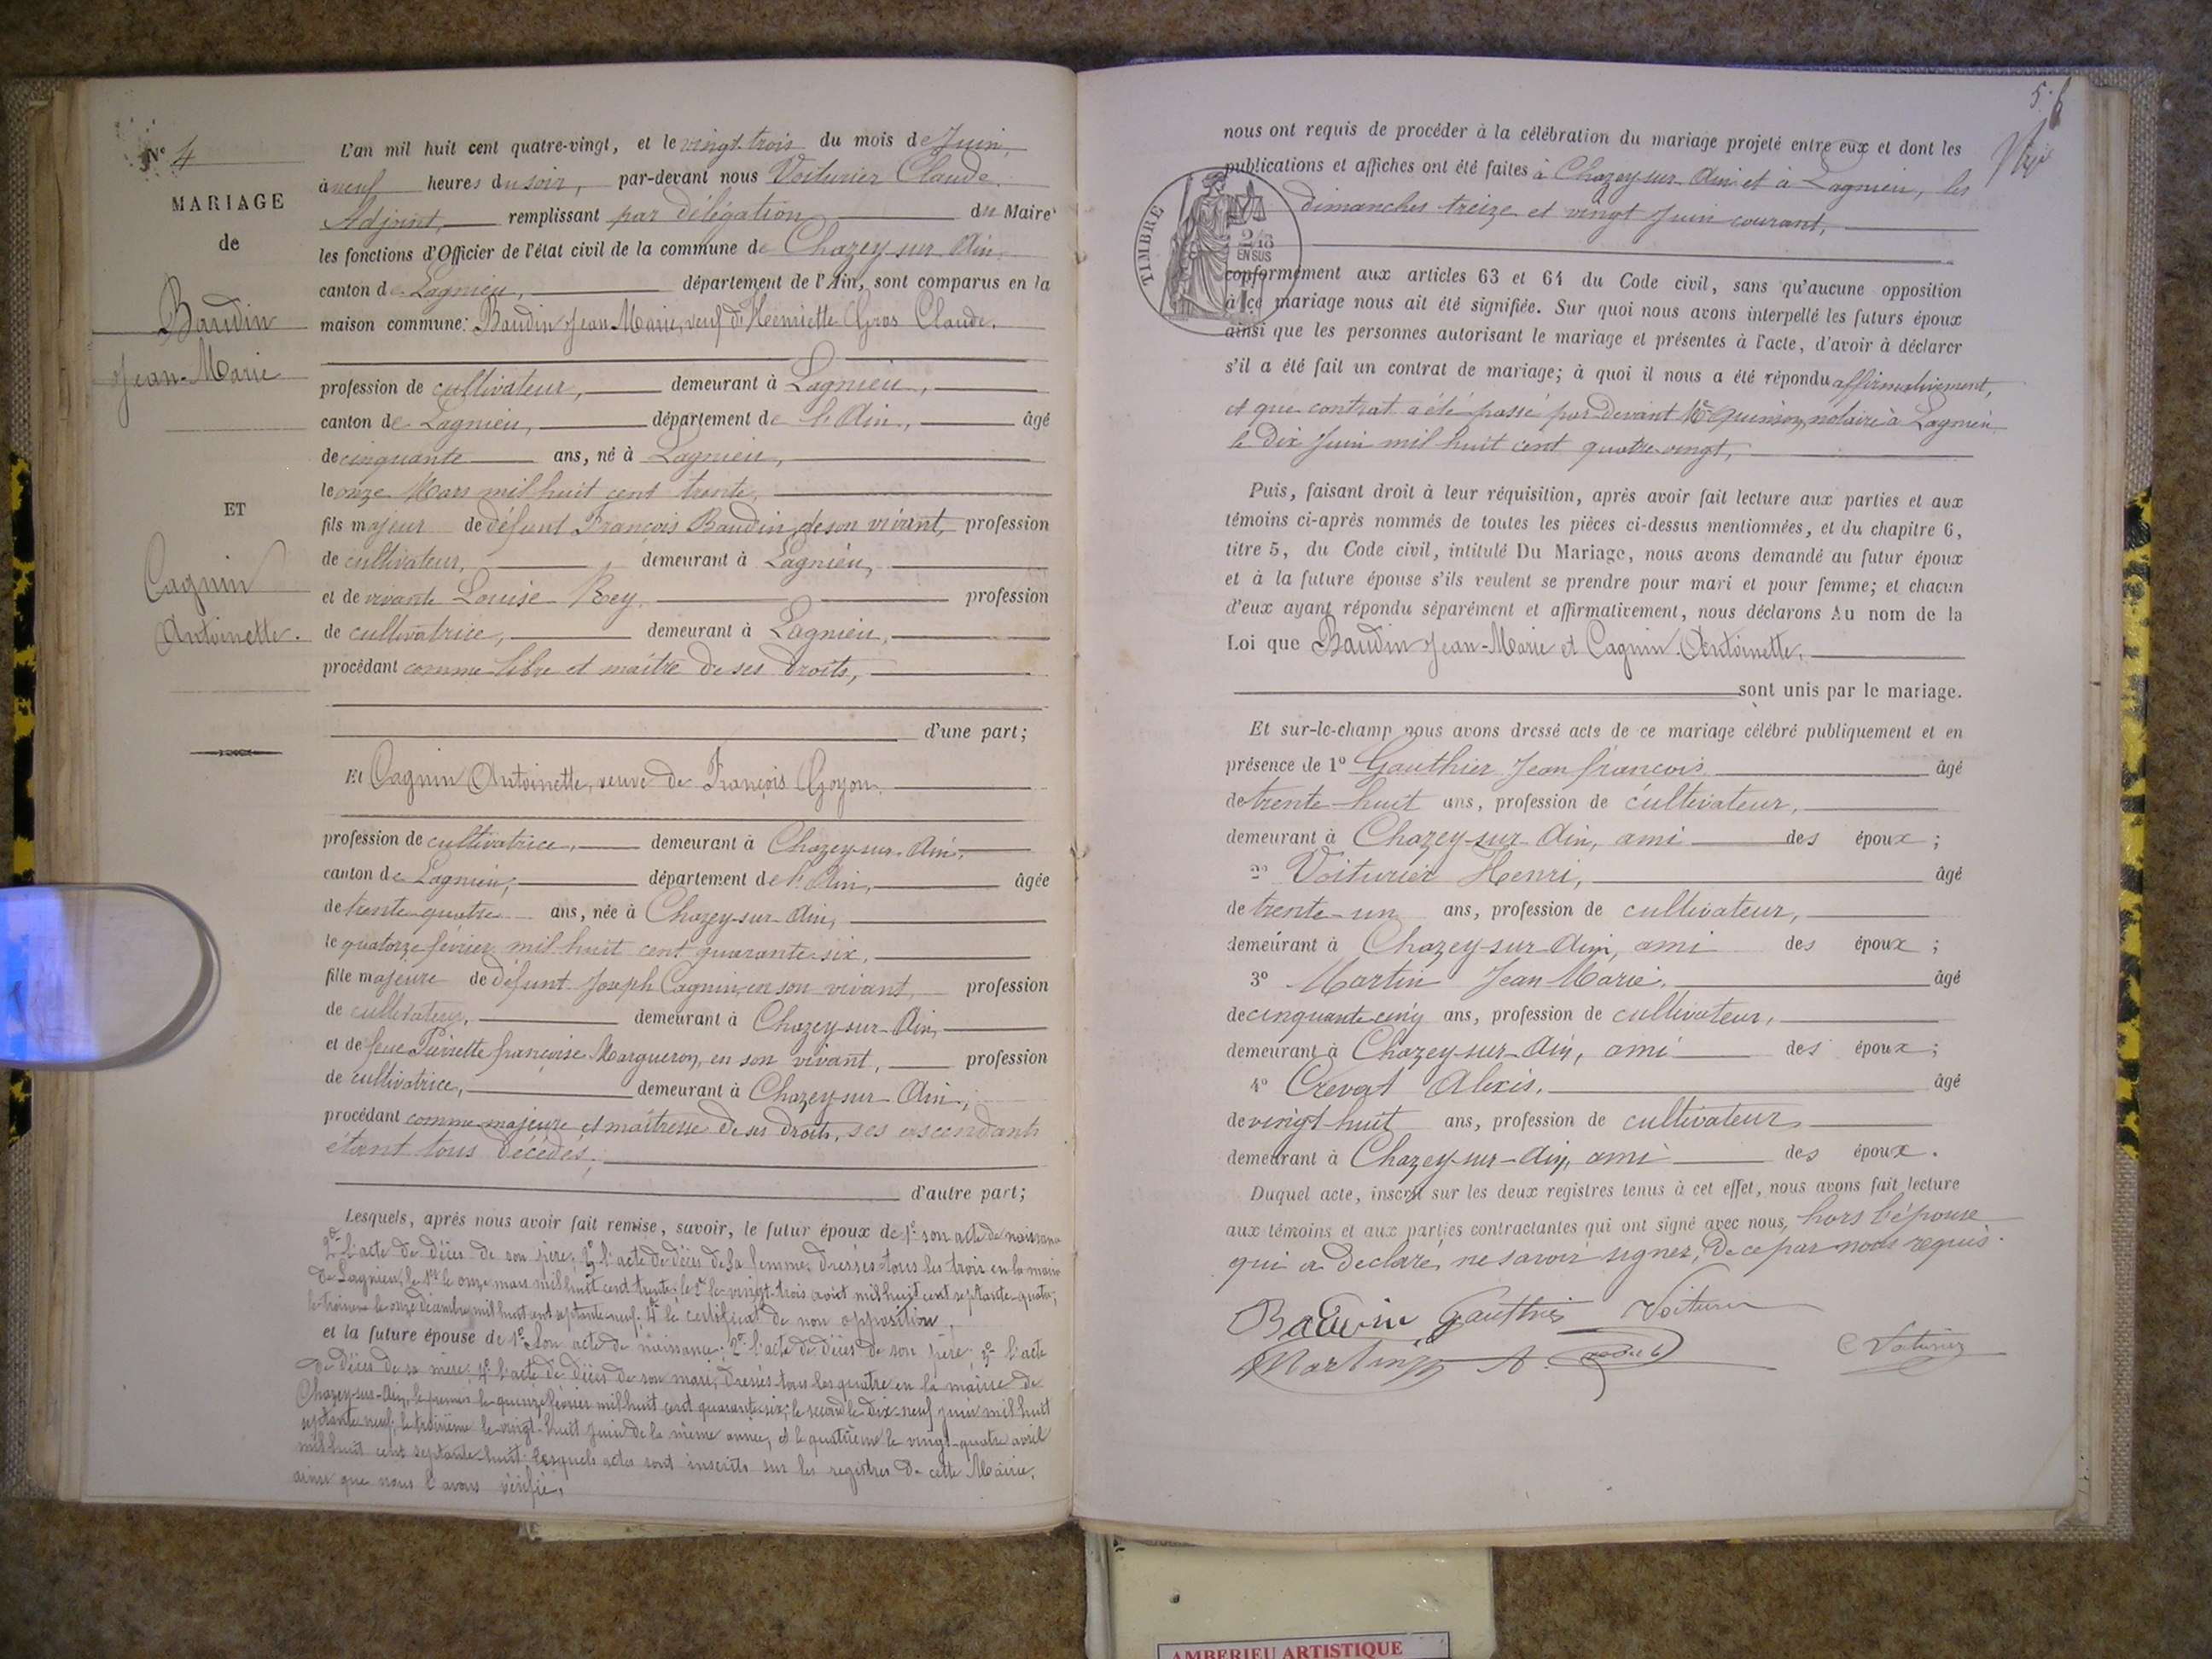 N° 4
MARIAGE
de
Baudin
Jean-Marie
ET
Cagnin
Antoinette.
L'an mil huit cent quatre-vingt, et le vingt-trois du mois de Juin,
à neuf heures du soir, par-devant nous Voiturier Claude,
Adjoint, remplissant par délégation du Maire
les fonctions d'Officier de l'état civil de la commune de Chazey-sur-Ain,
canton de Lagnieu, département de l'Ain, sont comparus en la
maison commune: Baudin Jean Marie, veuf de Henriette Gros Claude,
profession de cultivateur, demeurant à Lagnieu,
canton de Lagnieu, département de l'Ain, âgé
de cinquante ans, né à Lagnieu,
le onze Mars mil huit cent trente,
fils majeur de défunt François Baudin, de son vivant, profession
de cultivateur, demeurant à Lagnieu,
et de vivante Louise Rey, profession
de cultivatrice, demeurant à Lagnieu,
procédant comme libre et maître de ses droits,
d'une part;
Et Cagnin Antoinette, veuve de François Goyon,
profession de cultivatrice, demeurant à Chazey-sur-Ain,
canton de Lagnieu, département de l'Ain, âgée
de trente-quatre ans, née à Chazey-sur-Ain,
le quatorze février mil huit cent quarante-six,
fille majeure de défunt Joseph Cagnin, en son vivant, profession
de cultivateur, demeurant à Chazey-sur-Ain,
et de feue Pierrette françoise Margueron, en son vivant, profession
de cultivatrice, demeurant à Chazey-sur-Ain,
procédant comme majeure et maîtresse de ses droits, ses ascendants
étant tous décédés,
d'autre part;
Lesquels, après nous avoir fait remise, savoir, le futur époux de 1° son acte de naissance
2° l'acte de décès de son père; 3° l'acte de décès de sa femme, dressés tous les trois en la mairie
de Lagnieu, le 1er le onze mars mil huit cent trente; le 2e le vingt-trois août mil huit cent septante-quatre;
le troisième le onze décembre mil huit cent septante-neuf; 4° le certificat de non opposition,
et la future épouse de 1° Son acte de naissance; 2° l'acte de décès de son père; 3° l'acte
de décès de sa mère; 4° l'acte de décès de son mari, dressés tous les quatre en la mairie de
Chazey-sur-Ain, le premier le quinze février mil huit cent quarante-six; le second le dix-neuf juin mil huit
septante-neuf; le troisième le vingt-huit juin de la même année, et le quatrième le vingt-quatre avril
mil huit cent septante-huit. Lesquels actes sont inscrits sur les registres de cette Mairie,
ainsi que nous l'avons vérifié,
5.
nous ont requis de procéder à la célébration du mariage projeté entre eux et dont les
publications et affiches ont été faites à Chazey-sur-Ain et à Lagnieu, les
dimanches treize et vingt Juin courant,
TIMBRE
2/10
EN SUS
conformément aux articles 63 et 64 du Code civil, sans qu'aucune opposition
à ce mariage nous ait été signifiée. Sur quoi nous avons interpellé les futurs époux
ainsi que les personnes autorisant le mariage et présentes à l'acte, d'avoir à déclarer
s'il a été fait un contrat de mariage; à quoi il nous a été répondu affirmativement,
et que contrat a été passé par devant Me Quinson, notaire à Lagnieu
le dix Juin mil huit cent quatre-vingt,
Puis, faisant droit à leur réquisition, après avoir fait lecture aux parties et aux
témoins ci-après nommés de toutes les pièces ci-dessus mentionnées, et du chapitre 6,
titre 5, du Code civil, intitulé Du Mariage, nous avons demandé au futur époux
et à la future épouse s'ils veulent se prendre pour mari et pour femme; et chacun
d'eux ayant répondu séparément et affirmativement, nous déclarons Au nom de la
Loi que Baudin Jean-Marie et Cagnin Antoinette,
sont unis par le mariage.
Et sur-le-champ nous avons dressé acte de ce mariage célébré publiquement et en
présence de 1° Gauthier Jean françois âgé
de trente-huit ans, profession de cultivateur,
demeurant à Chazey-sur-Ain, ami des époux;
2° Voiturier Henri, âgé
de trente-un ans, profession de cultivateur,
demeurant à Chazey-sur-Ain, ami des époux;
3° Martin Jean Marie, âgé
de cinquante-cinq ans, profession de cultivateur,
demeurant à Chazey-sur-Ain, ami des époux;
4° Crevat Alexis, âgé
de vingt-huit ans, profession de cultivateur,
demeurant à Chazey-sur-Ain, ami des époux.
Duquel acte, inscrit sur les deux registres tenus à cet effet, nous avons fait lecture
aux témoins et aux parties contractantes qui ont signé avec nous, hors l'épouse
qui a déclaré ne savoir signer, de ce par nous requis.
Baudin Gauthier Voiturier
Martin A. C Voiturier
AMBERIEU ARTISTIQUE